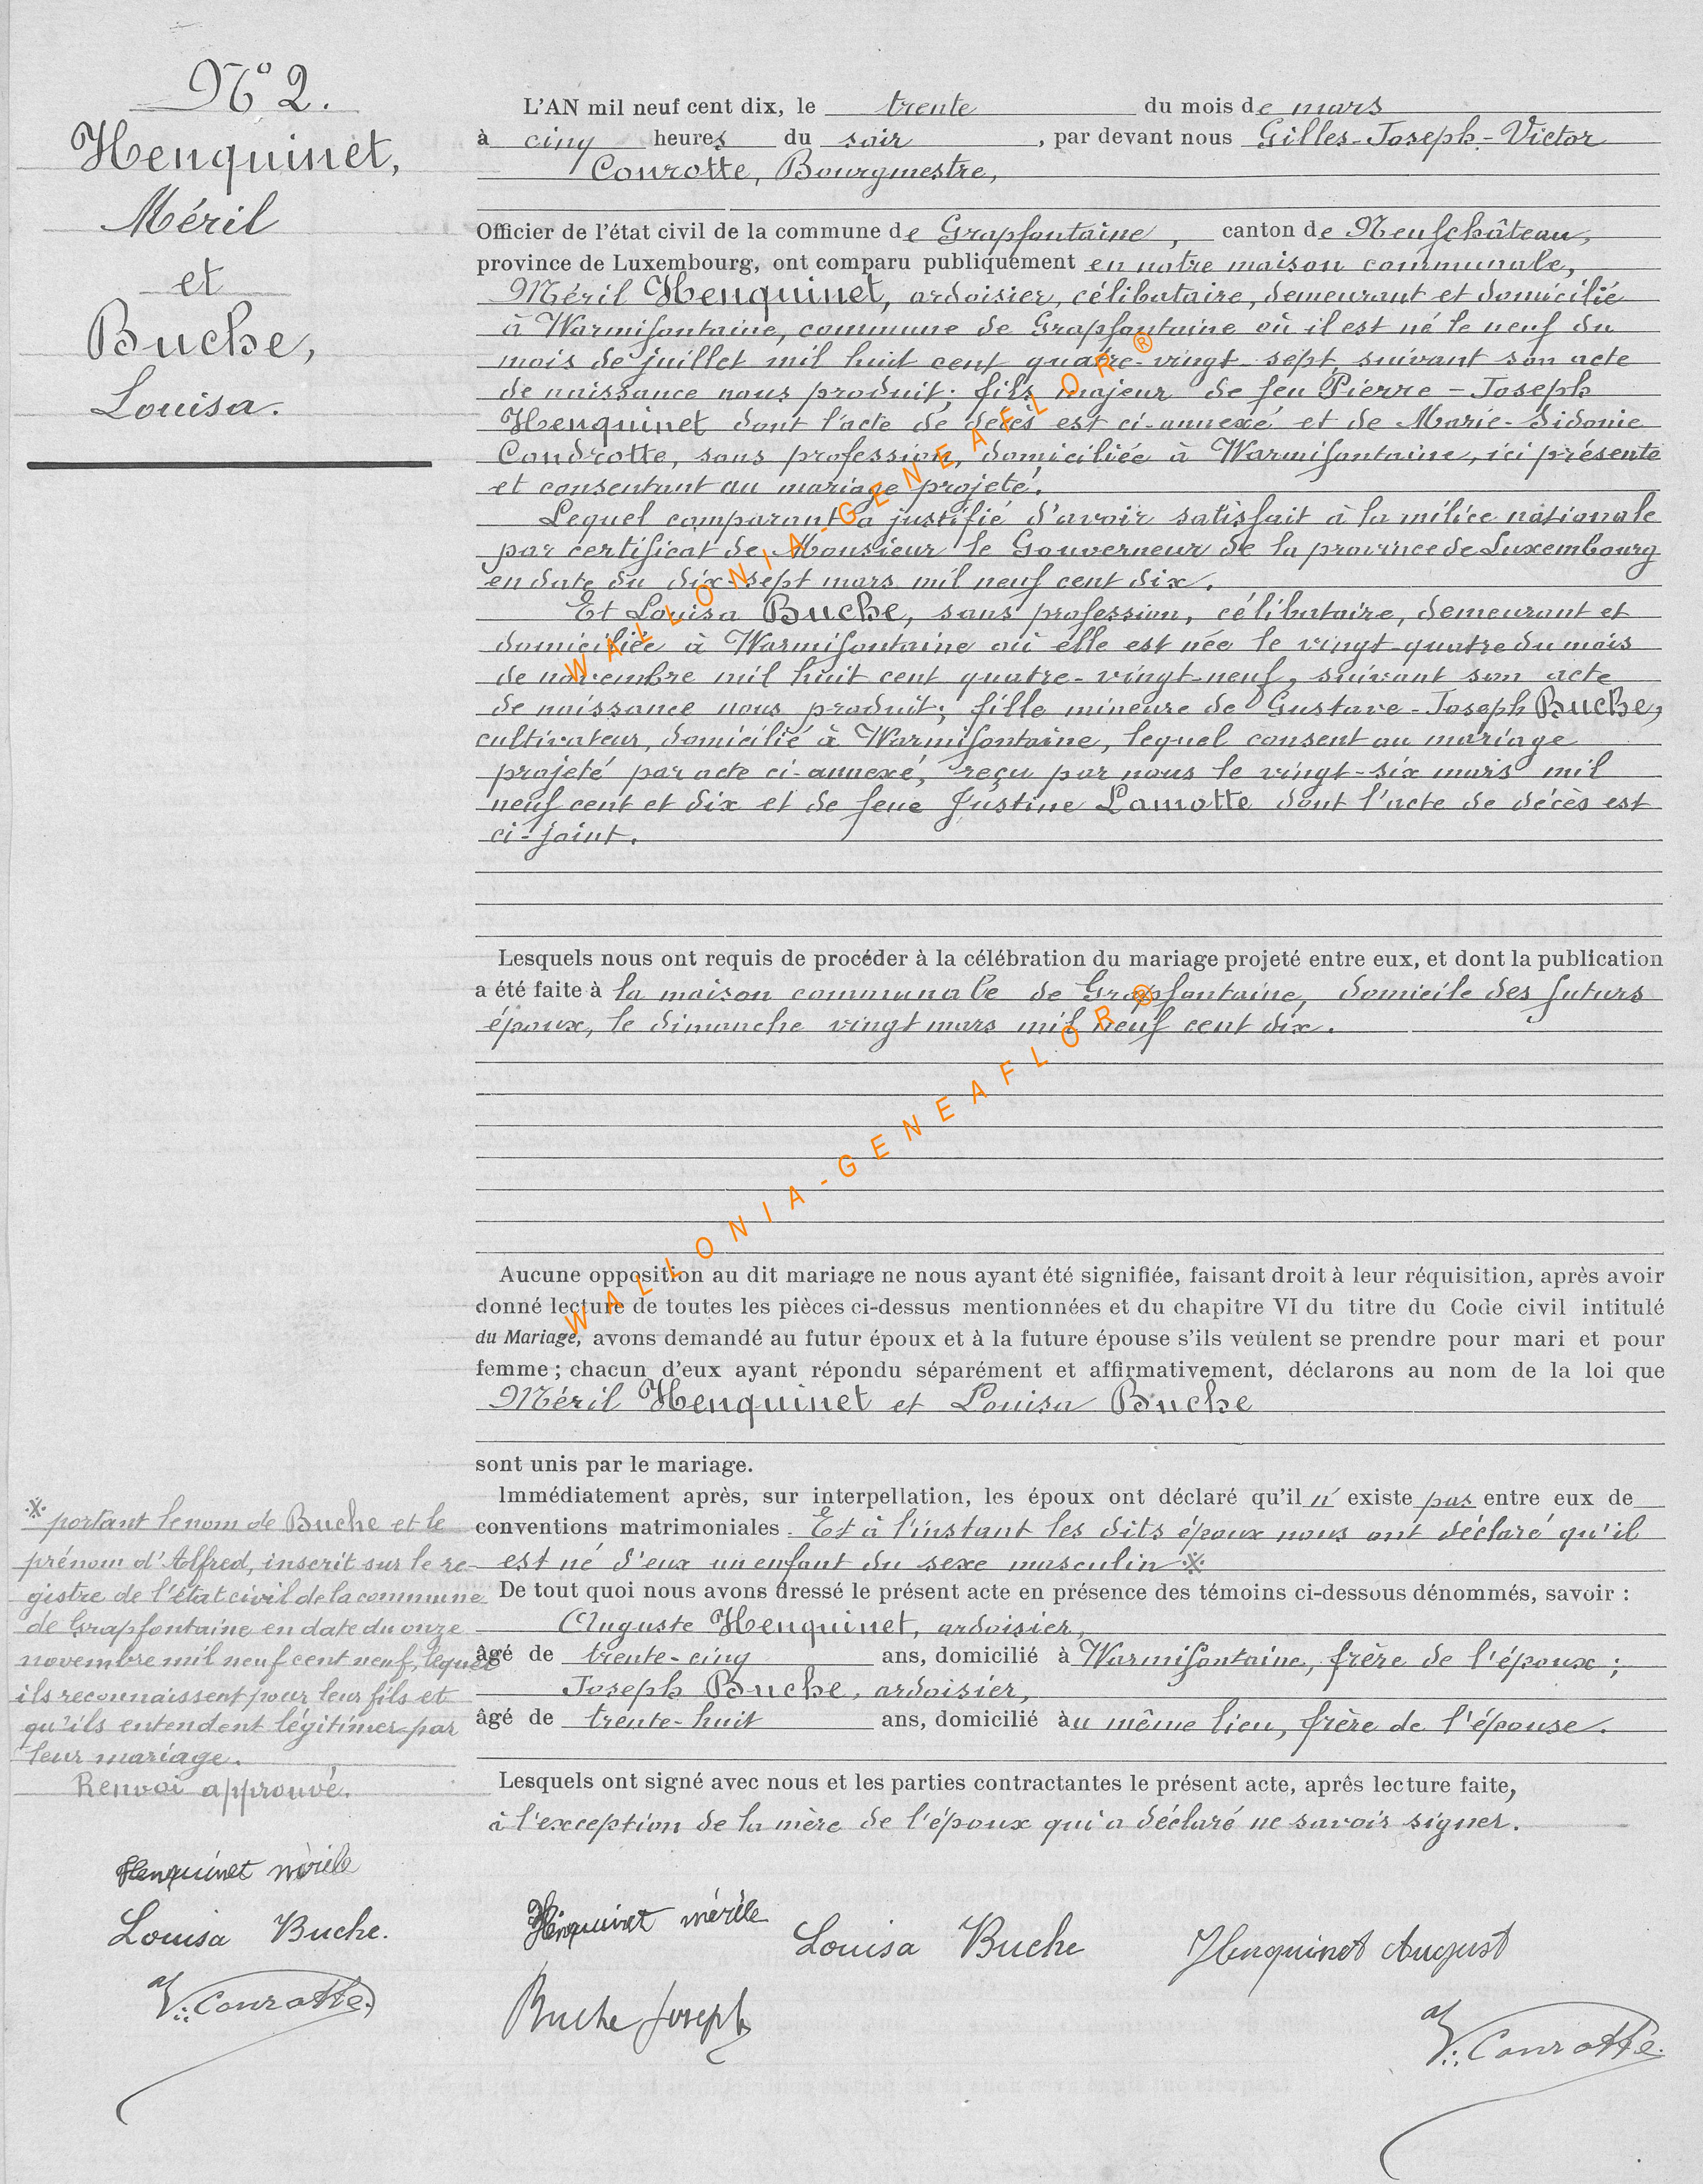 N° 2.
Henquinet,
Méril
et
Buche,
Louisa.
L'AN mil neuf cent dix, le trente du mois de mars
à cinq heures du soir, par devant nous Gilles-Joseph-Victor
Conrotte, Bourgmestre,
Officier de l'état civil de la commune de Grapfontaine, canton de Neufchâteau,
province de Luxembourg, ont comparu publiquement en notre maison communale,
Méril Henquinet, ardoisier, célibataire, demeurant et domicilié
à Warmifontaine, commune de Grapfontaine où il est né le neuf du
mois de juillet mil huit cent quatre-vingt-sept, suivant son acte
de naissance nous produit; fils majeur de feu Pierre-Joseph
Henquinet dont l'acte de décès est ci-annexé et de Marie-Sidonie
Condrotte, sans profession, domiciliée à Warmifontaine, ici présente
et consentant au mariage projeté.
Lequel comparant a justifié d'avoir satisfait à la milice nationale
par certificat de Monsieur le Gouverneur de la province de Luxembourg
en date du dix-sept mars mil neuf cent dix.
Et Louisa Buche, sans profession, célibataire, demeurant et
domiciliée à Warmifontaine où elle est née le vingt-quatre du mois
de novembre mil huit cent quatre-vingt-neuf, suivant son acte
de naissance nous produit; fille mineure de Gustave-Joseph Buche,
cultivateur, domicilié à Warmifontaine, lequel consent au mariage
projeté par acte ci-annexé, reçu par nous le vingt-six mars mil
neuf cent et dix et de feue Justine Lamotte dont l'acte de décès est
ci-joint.
Lesquels nous ont requis de procéder à la célébration du mariage projeté entre eux, et dont la publication
a été faite à la maison communale de Grapfontaine, domicile des futurs
époux, le dimanche vingt mars mil neuf cent dix.
Aucune opposition au dit mariage ne nous ayant été signifiée, faisant droit à leur réquisition, après avoir
donné lecture de toutes les pièces ci-dessus mentionnées et du chapitre VI du titre du Code civil intitulé
du Mariage, avons demandé au futur époux et à la future épouse s'ils veulent se prendre pour mari et pour
femme ; chacun d'eux ayant répondu séparément et affirmativement, déclarons au nom de la loi que
Méril Henquinet et Louisa Buche
sont unis par le mariage.
Immédiatement après, sur interpellation, les époux ont déclaré qu'il n'existe pas entre eux de
conventions matrimoniales. Et à l'instant les dits époux nous ont déclaré qu'il
est né d'eux un enfant du sexe masculin ※
De tout quoi nous avons dressé le présent acte en présence des témoins ci-dessous dénommés, savoir :
Auguste Henquinet, ardoisier,
âgé de trente-cinq ans, domicilié à Warmifontaine, frère de l'époux ;
Joseph Buche, ardoisier,
âgé de trente-huit ans, domicilié au même lieu, frère de l'épouse.
Lesquels ont signé avec nous et les parties contractantes le présent acte, après lecture faite,
à l'exception de la mère de l'époux qui a déclaré ne savoir signer.
※ portant le nom de Buche et le
prénom d'Alfred, inscrit sur le re-
gistre de l'état civil de la commune
de Grapfontaine en date du onze
novembre mil neuf cent neuf, lequel
ils reconnaissent pour leur fils et
qu'ils entendent légitimer par
leur mariage.
Renvoi approuvé.
Henquinet mérile
Louisa Buche.
V. Conrotte
Henquinet mérile Louisa Buche Henquinet August
Buche Joseph
V. Conrotte
WALLONIA-GENEAFLOR®
WALLONIA-GENEAFLOR®